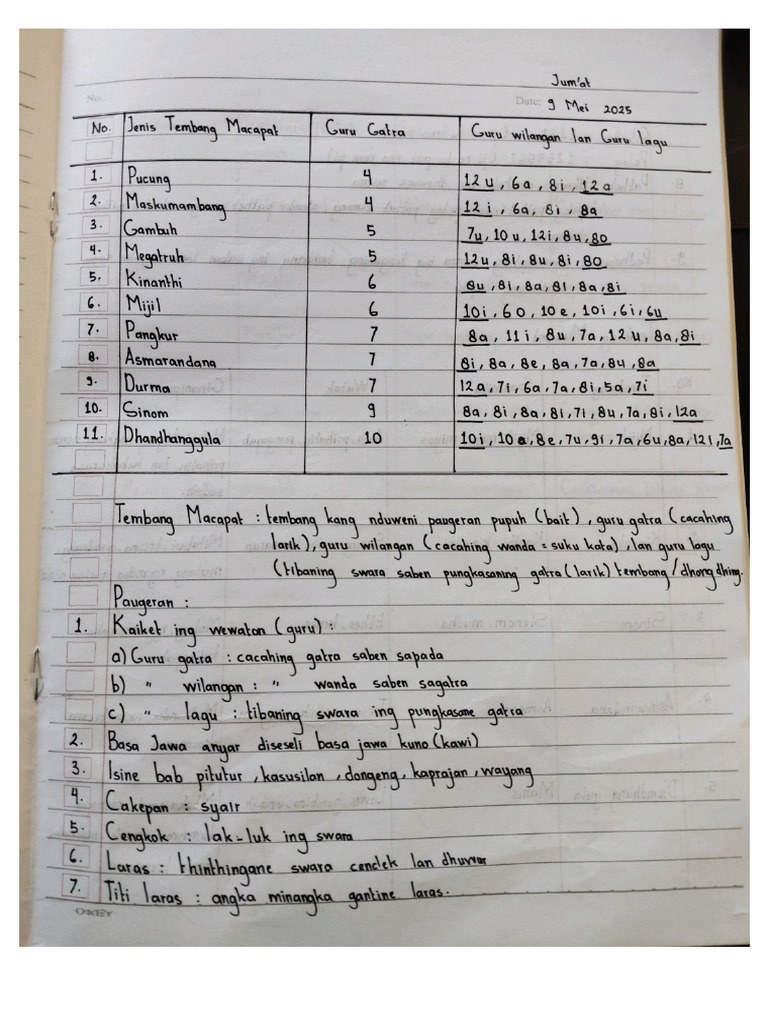 Jum'at
No.:
Date: 9 Mei 2025
No. Jenis Tembang Macapat Guru Gatra Guru wilangan lan Guru lagu
1. Pucung 4 12u, 6a, 8i, 12a
2. Maskumambang 4 12i, 6a, 8i, 8a
3. Gambuh 5 7u, 10u, 12i, 8u, 8o
4. Megatruh 5 12u, 8i, 8u, 8i, 8o
5. Kinanthi 6 8u, 8i, 8a, 8i, 8a, 8i
6. Mijil 6 10i, 6o, 10e, 10i, 6i, 6u
7. Pangkur 7 8a, 11i, 8u, 7a, 12u, 8a, 8i
8. Asmarandana 7 8i, 8a, 8e, 8a, 7a, 8u, 8a
9. Durma 7 12a, 7i, 6a, 7a, 8i, 5a, 7i
10. Sinom 9 8a, 8i, 8a, 8i, 7i, 8u, 7a, 8i, 12a
11. Dhandhanggula 10 10i, 10a, 8e, 7u, 9i, 7a, 6u, 8a, 12i, 7a
Tembang Macapat : tembang kang nduweni paugeran pupuh (bait), guru gatra (cacahing
larik), guru wilangan (cacahing wanda = suku kata), lan guru lagu
(tibaning swara saben pungkasaning gatra (larik) tembang / dhong dhing.
Paugeran :
1. Kaiket ing wewaton (guru) :
a) Guru gatra : cacahing gatra saben sapada
b) " wilangan : " wanda saben sagatra
c) " lagu : tibaning swara ing pungkasane gatra
2. Basa Jawa anyar diseseli basa jawa kuno (kawi)
3. Isine bab pitutur, kasusilan, dongeng, kaprajan, wayang
4. Cakepan : syair
5. Cengkok : lak-luk ing swara
6. Laras : thinthingane swara cendek lan dhuwur
7. Titi laras : angka minangka gantine laras.